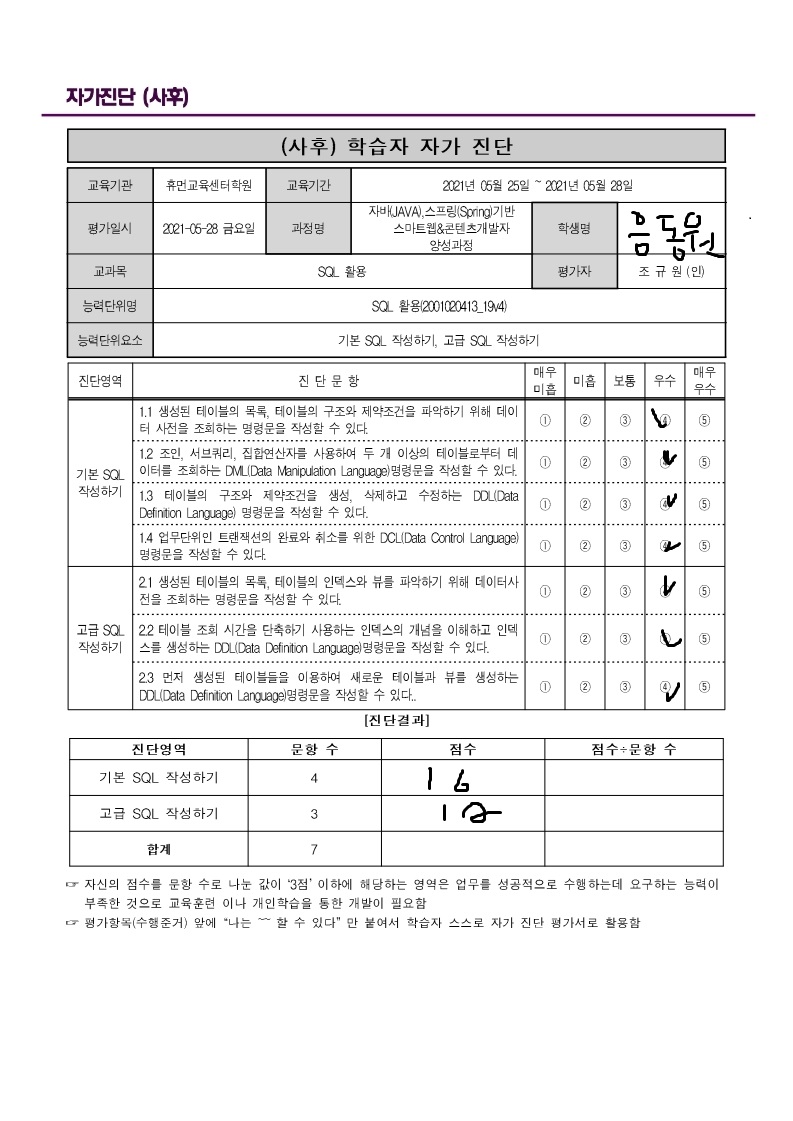 자가진단 (사후)
(사후) 학습자 자가 진단
교육기관 휴먼교육센터학원 교육기간 2021년 05월 25일 ~ 2021년 05월 28일
평가일시 2021-05-28 금요일 과정명 자바(JAVA),스프링(Spring)기반
스마트웹&콘텐츠개발자
양성과정 학생명 음동원
교과목 SQL 활용 평가자 조 규 원 (인)
능력단위명 SQL 활용(2001020413_19v4)
능력단위요소 기본 SQL 작성하기, 고급 SQL 작성하기
진단영역 진 단 문 항 매우
미흡 미흡 보통 우수 매우
우수
기본 SQL
작성하기
1.1 생성된 테이블의 목록, 테이블의 구조와 제약조건을 파악하기 위해 데이
터 사전을 조회하는 명령문을 작성할 수 있다. ① ② ③ ④ ⑤
1.2 조인, 서브쿼리, 집합연산자를 사용하여 두 개 이상의 테이블로부터 데
이터를 조회하는 DML(Data Manipulation Language)명령문을 작성할 수 있다. ① ② ③ ④ ⑤
1.3 테이블의 구조와 제약조건을 생성, 삭제하고 수정하는 DDL(Data
Definition Language) 명령문을 작성할 수 있다. ① ② ③ ④ ⑤
1.4 업무단위인 트랜잭션의 완료와 취소를 위한 DCL(Data Control Language)
명령문을 작성할 수 있다. ① ② ③ ④ ⑤
고급 SQL
작성하기
2.1 생성된 테이블의 목록, 테이블의 인덱스와 뷰를 파악하기 위해 데이터사
전을 조회하는 명령문을 작성할 수 있다. ① ② ③ ④ ⑤
2.2 테이블 조회 시간을 단축하기 사용하는 인덱스의 개념을 이해하고 인덱
스를 생성하는 DDL(Data Definition Language)명령문을 작성할 수 있다. ① ② ③ ④ ⑤
2.3 먼저 생성된 테이블들을 이용하여 새로운 테이블과 뷰를 생성하는
DDL(Data Definition Language)명령문을 작성할 수 있다.. ① ② ③ ④ ⑤
[진단결과]
진단영역 문항 수 점수 점수÷문항 수
기본 SQL 작성하기 4 16
고급 SQL 작성하기 3 12
합계 7
☞ 자신의 점수를 문항 수로 나눈 값이 ‘3점’ 이하에 해당하는 영역은 업무를 성공적으로 수행하는데 요구하는 능력이
부족한 것으로 교육훈련 이나 개인학습을 통한 개발이 필요함
☞ 평가항목(수행준거) 앞에 “나는 ~~ 할 수 있다” 만 붙여서 학습자 스스로 자가 진단 평가서로 활용함